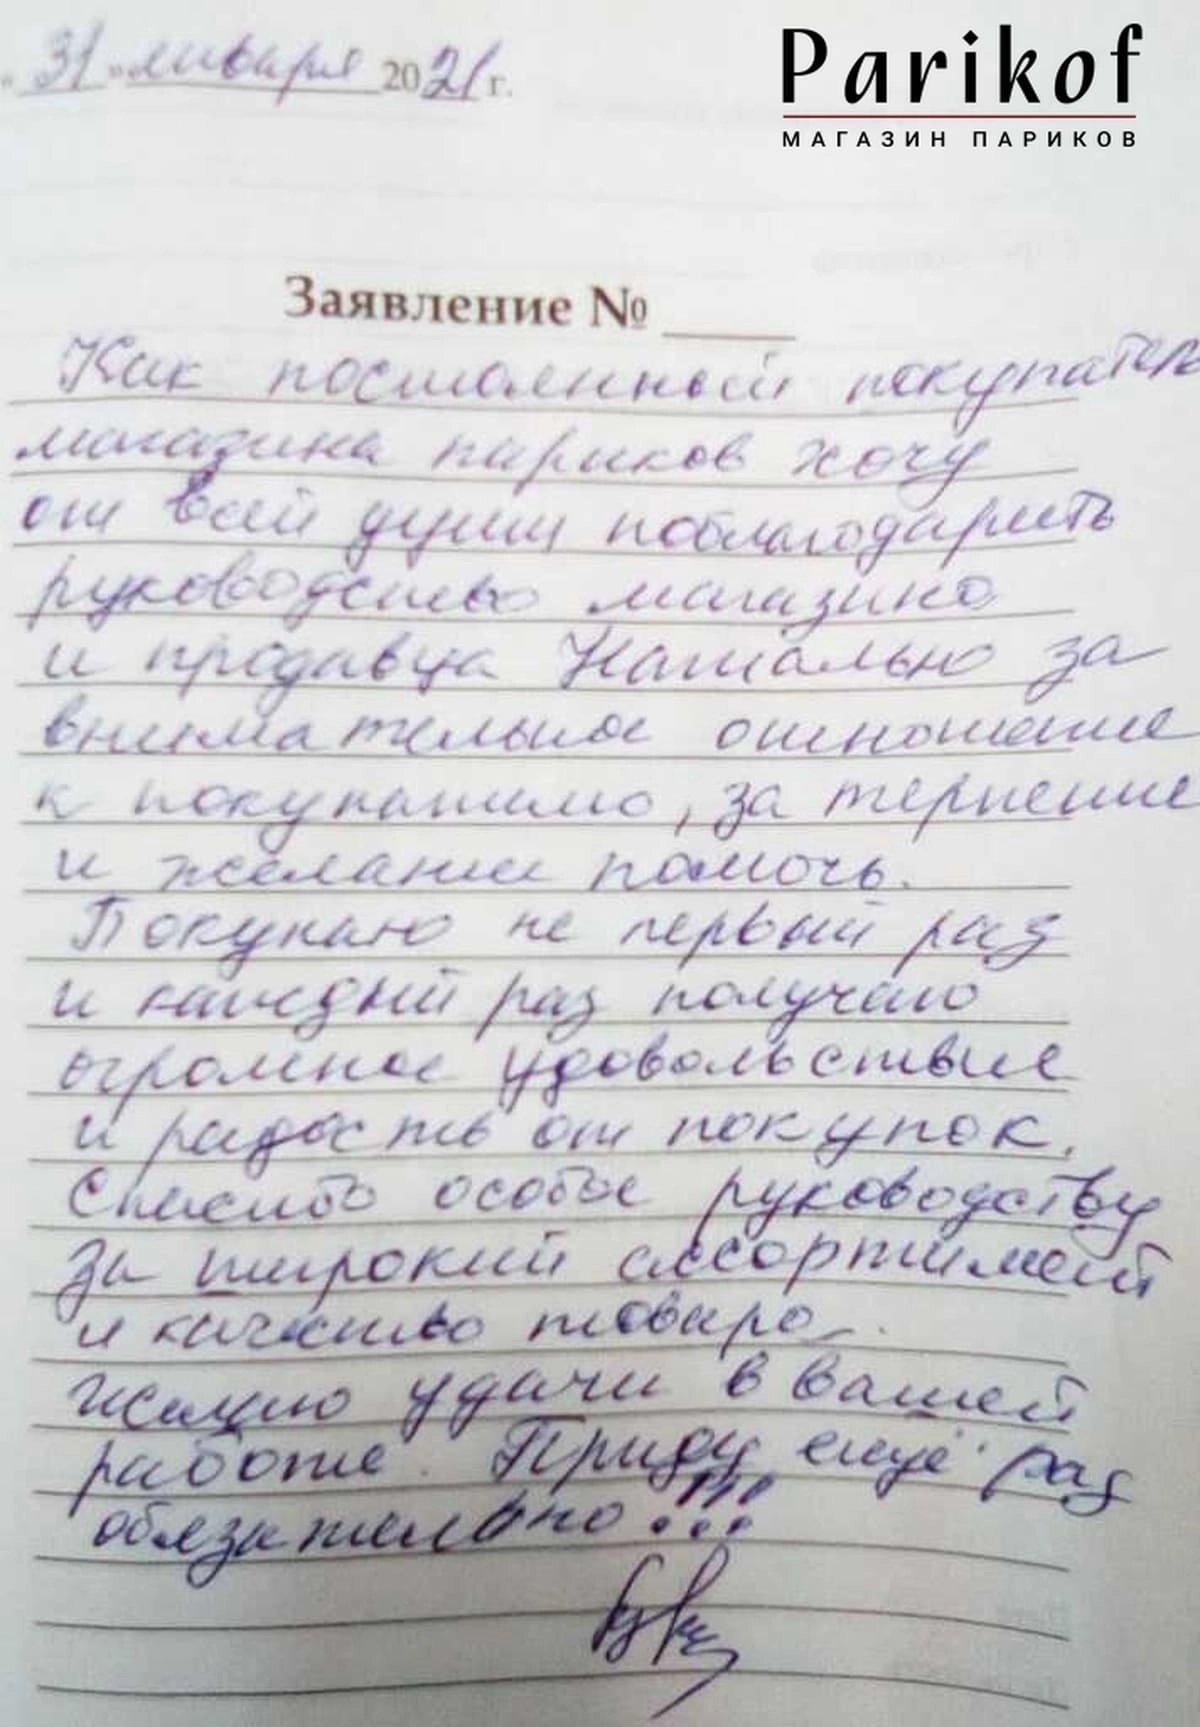 Parikof
МАГАЗИН ПАРИКОВ
"31" января 2021 г.
Заявление №
Как постоянный покупатель
магазина париков хочу
от всей души поблагодарить
руководство магазина
и продавца Наталью за
внимательное отношение
к покупателю, за терпение
и желание помочь.
Покупаю не первый раз
и каждый раз получаю
огромное удовольствие
и радость от покупок.
Спасибо особое руководству
за широкий ассортимент
и качество товара.
Желаю удачи в вашей
работе. Приду ещё раз
обязательно!!!